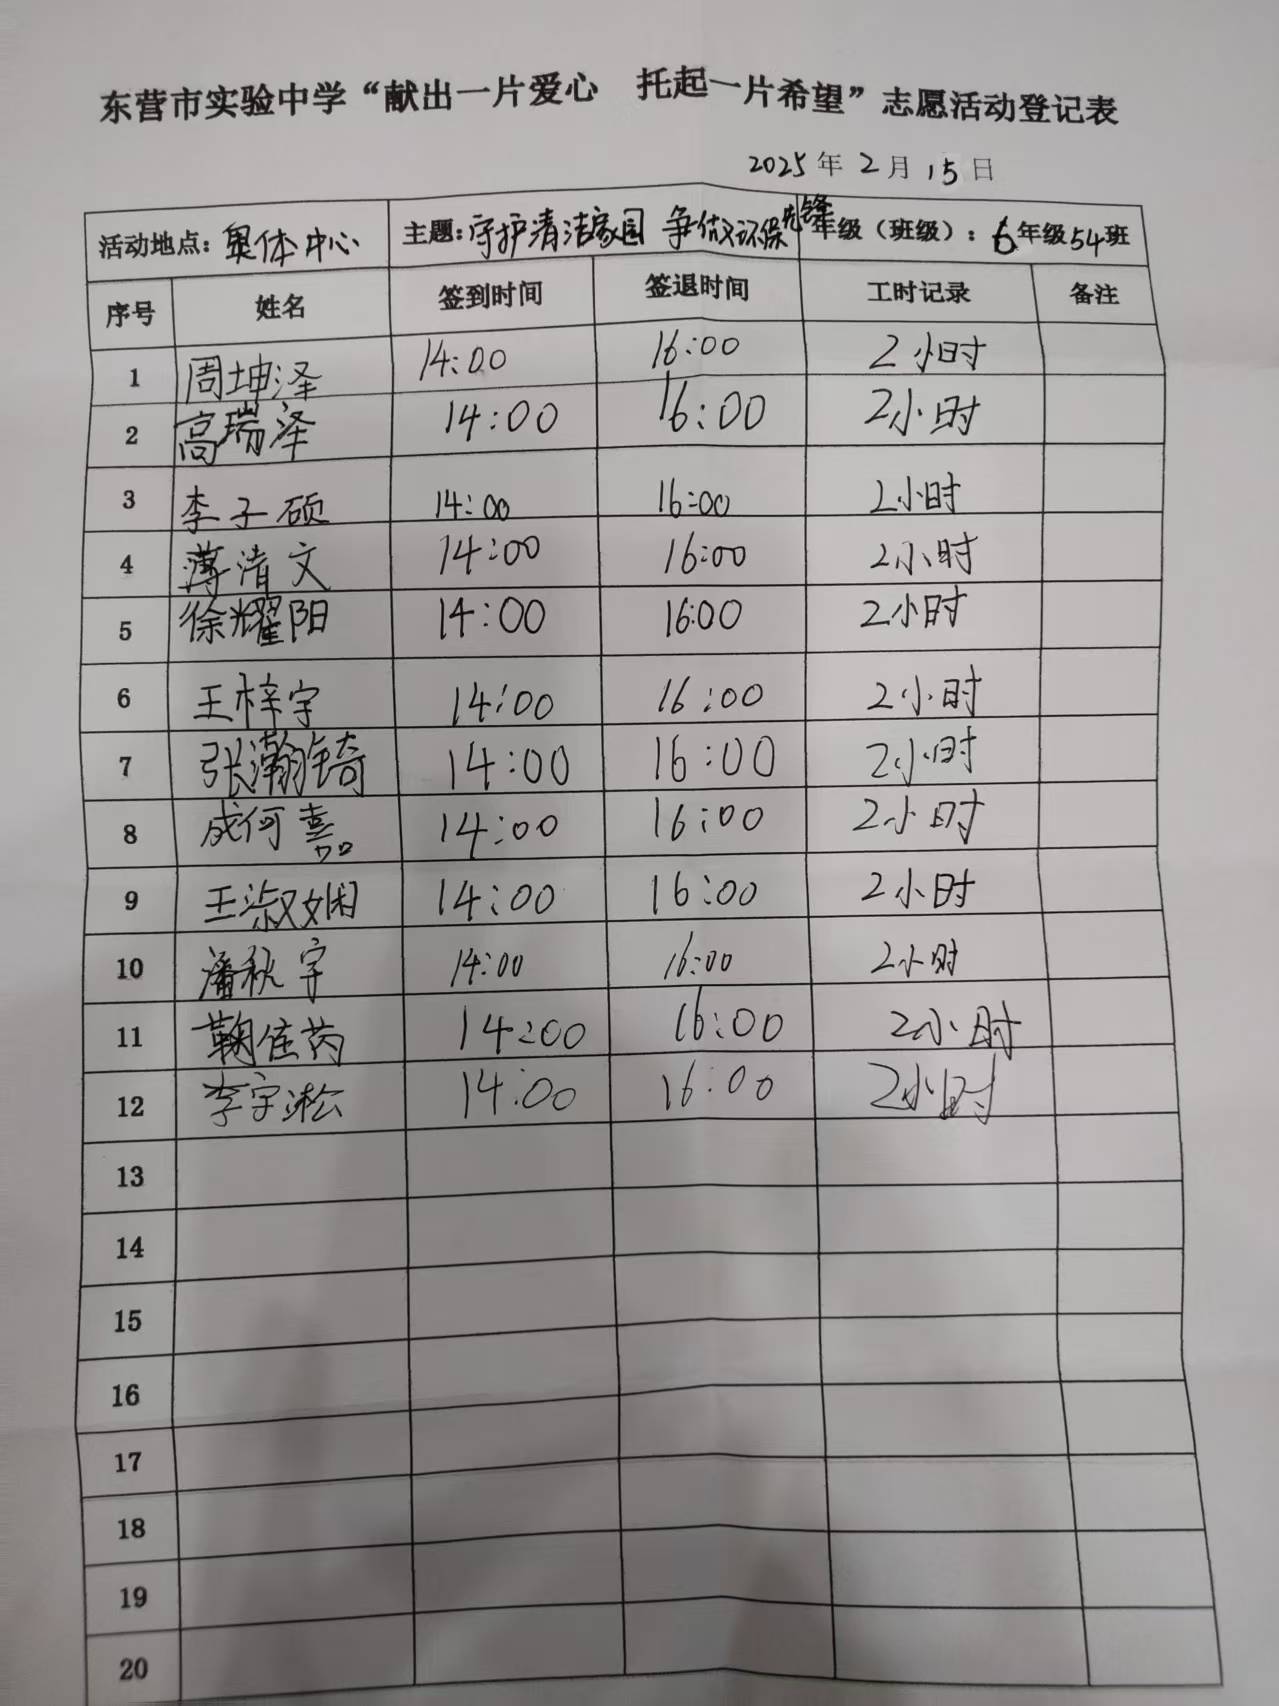 东营市实验中学“献出一片爱心 托起一片希望”志愿活动登记表
2025年2月15日
活动地点：奥体中心 主题：守护清洁家园 争做环保先锋 年级（班级）：6年级54班
序号 姓名 签到时间 签退时间 工时记录 备注
1 周坤泽 14:00 16:00 2小时
2 高瑞泽 14:00 16:00 2小时
3 李子硕 14:00 16:00 2小时
4 薄清文 14:00 16:00 2小时
5 徐耀阳 14:00 16:00 2小时
6 王梓宇 14:00 16:00 2小时
7 张瀚锜 14:00 16:00 2小时
8 成何嘉 14:00 16:00 2小时
9 王淑娴 14:00 16:00 2小时
10 潘秋宇 14:00 16:00 2小时
11 鞠佳芮 14:00 16:00 2小时
12 李宇淞 14:00 16:00 2小时
13
14
15
16
17
18
19
20